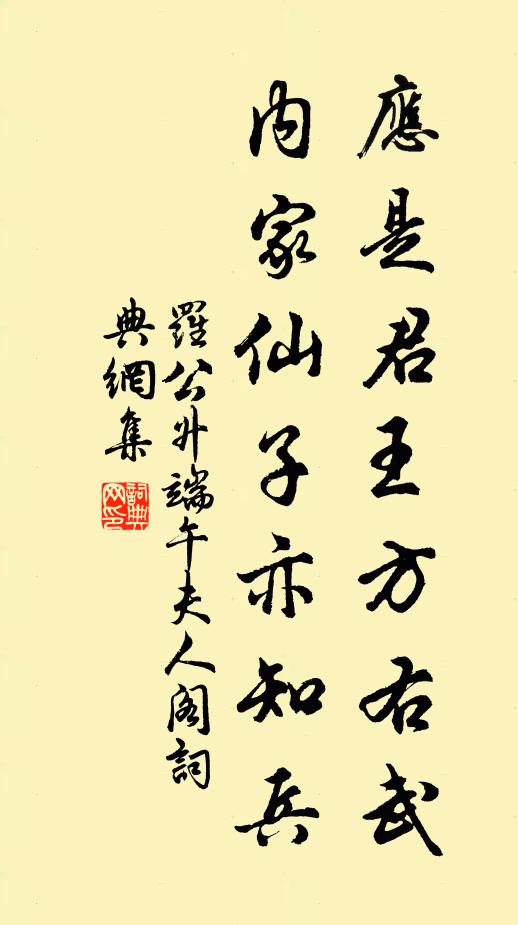 應是君王方右武
内家仙子亦知兵
羅公升端午夫人閣詞
典網集
詞典網印